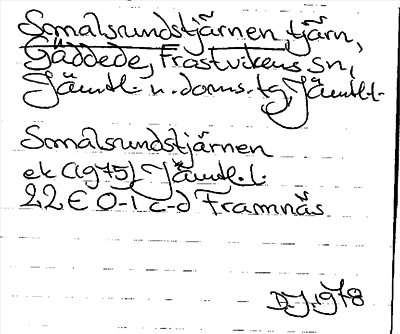 Smalsundstjärnen, tjärn,
Gäddede, Frostvikens sn,
Jämtl:s n. doms. tg, Jämtl.l.
Smalsundstjärnen
ek (1975) Jämtl. l.
22E 0-1 c-d Framnäs
D.J. 1978